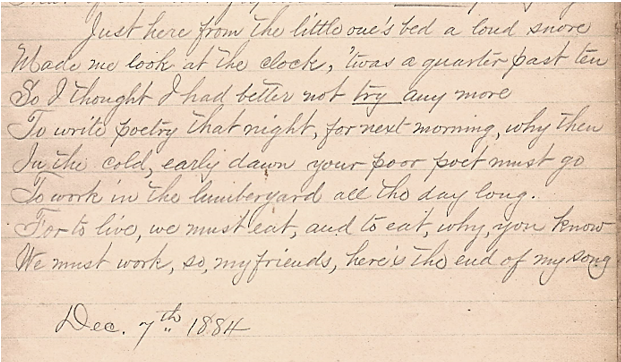 Just here from the little one's bed a loud snore
Made me look at the clock, 'twas a quarter past ten
So I thought I had better not try any more
To write poetry that night, for next morning, why then
In the cold, early dawn your poor poet must go
To work in the lumberyard all the day long.
For to live, we must eat, and to eat, why, you know
We must work, so, my friends, here's the end of my song
Dec. 7th 1884